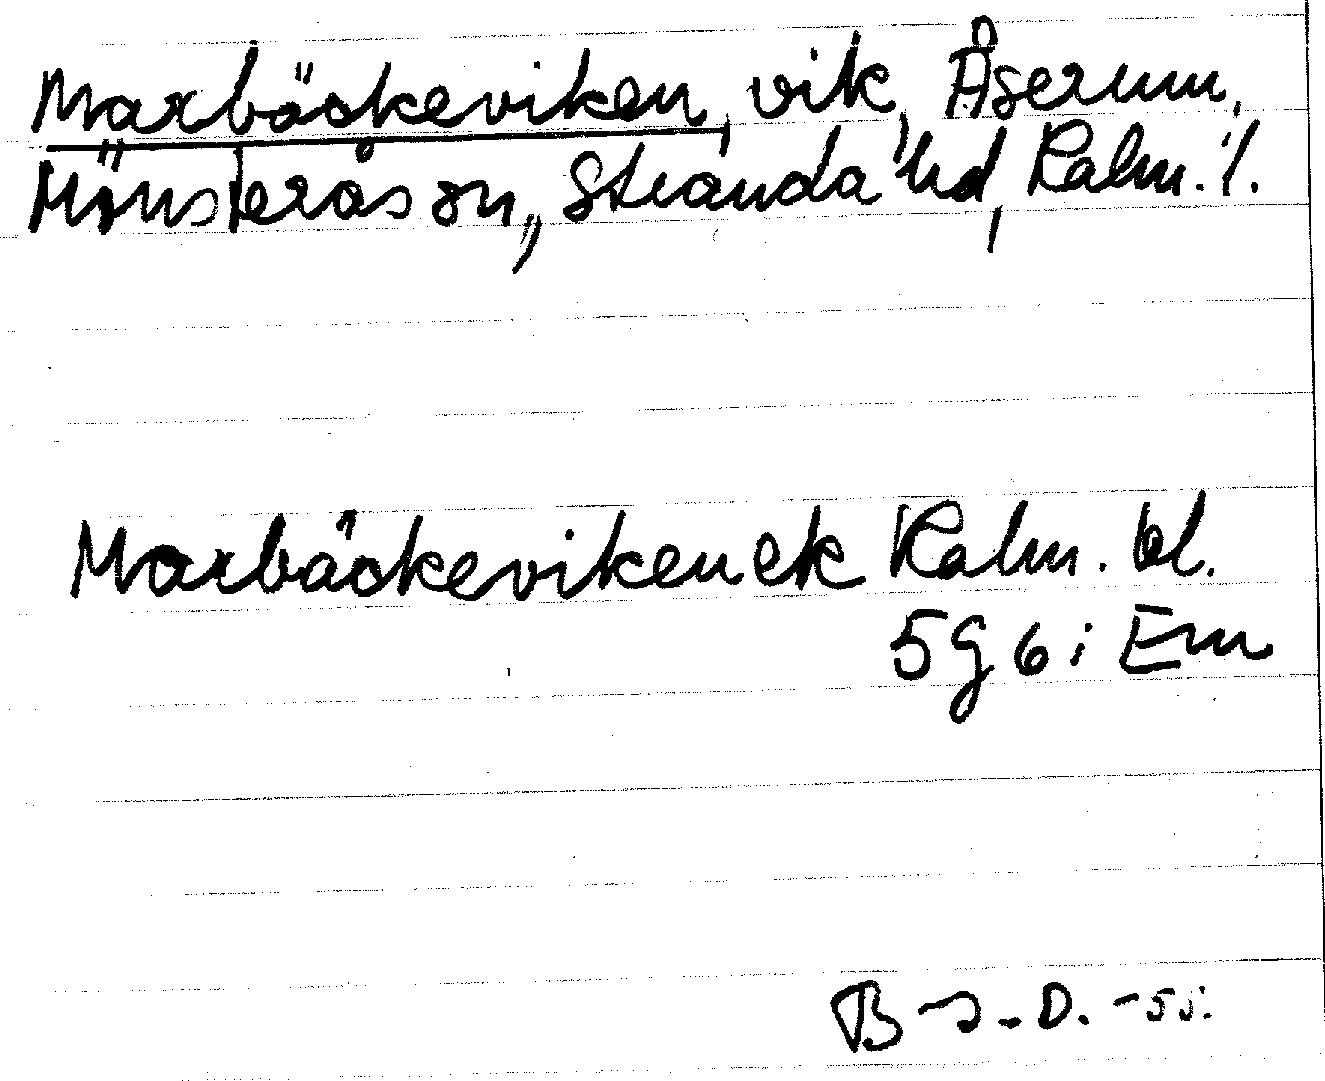 Marbäckeviken, vik, Åserum,
Mönsterås sn, Stranda hd, Kalm. l.
Marbäckeviken ek Kalm. bl.
5g 6 i Em
-55.